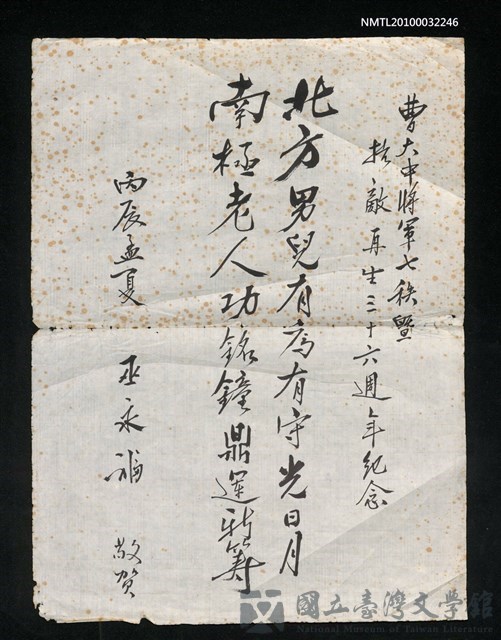 NMTL20100032246
曹大中將軍七秩暨
抗敵再生三十六週年紀念
北方男兒有為有守光日月
南極老人功銘鐘鼎運新籌
丙辰孟夏
巫永福 敬賀
國立臺灣文學館
National Museum of Taiwan Literature